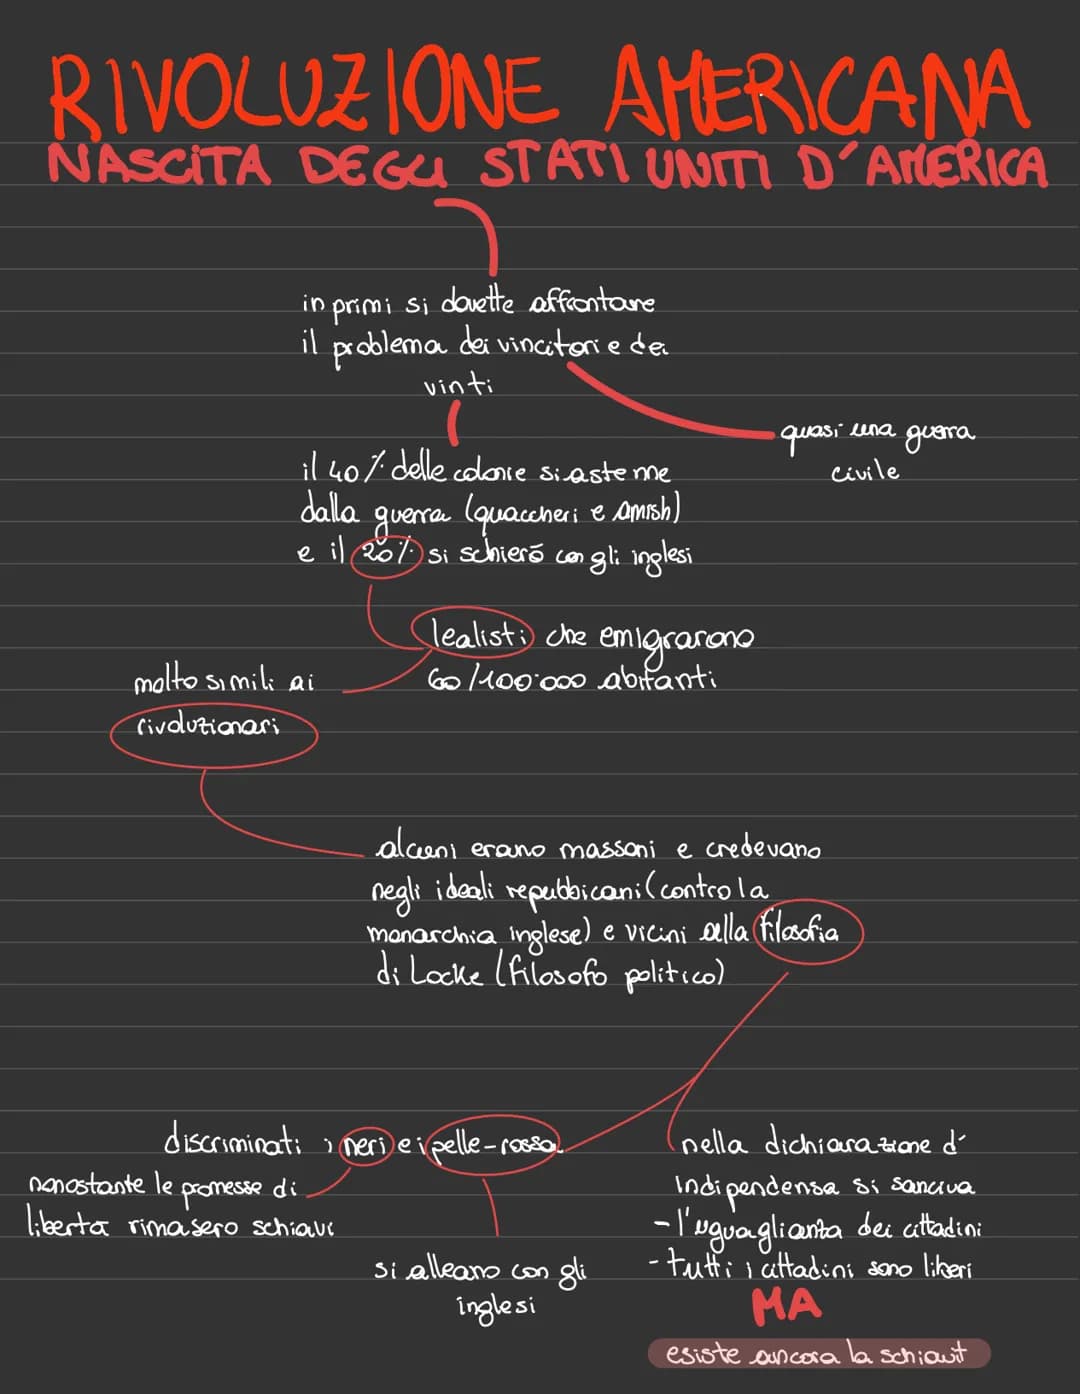 RIVOLUZIONE AMERICANA
NASCITA DEGLI STATI UNITI D'AMERICA
in primi si dovette affrontare
il problema dei vincitori e dei
vinti
quasi una guerra
civile
il 40% delle colonie si astenne
dalla guerra (quaccheri e Amish)
e il 20% si schierò con gli inglesi
lealisti che emigrarono
60/100.000 abitanti
molto simili ai
rivoluzionari
alcuni erano massoni e credevano
negli ideali repubbicani (contro la
monarchia inglese) e vicini alla filosofia
di Locke (filosofo politico)
discriminati i neri e i pelle-rossa
nonostante le promesse di
libertà rimasero schiavi
si alleano con gli
inglesi
nella dichiarazione d'
Indipendensa si sanciva
- l'uguaglianza dei cittadini
- tutti i cittadini sono liberi
MA
esiste ancora la schiavit